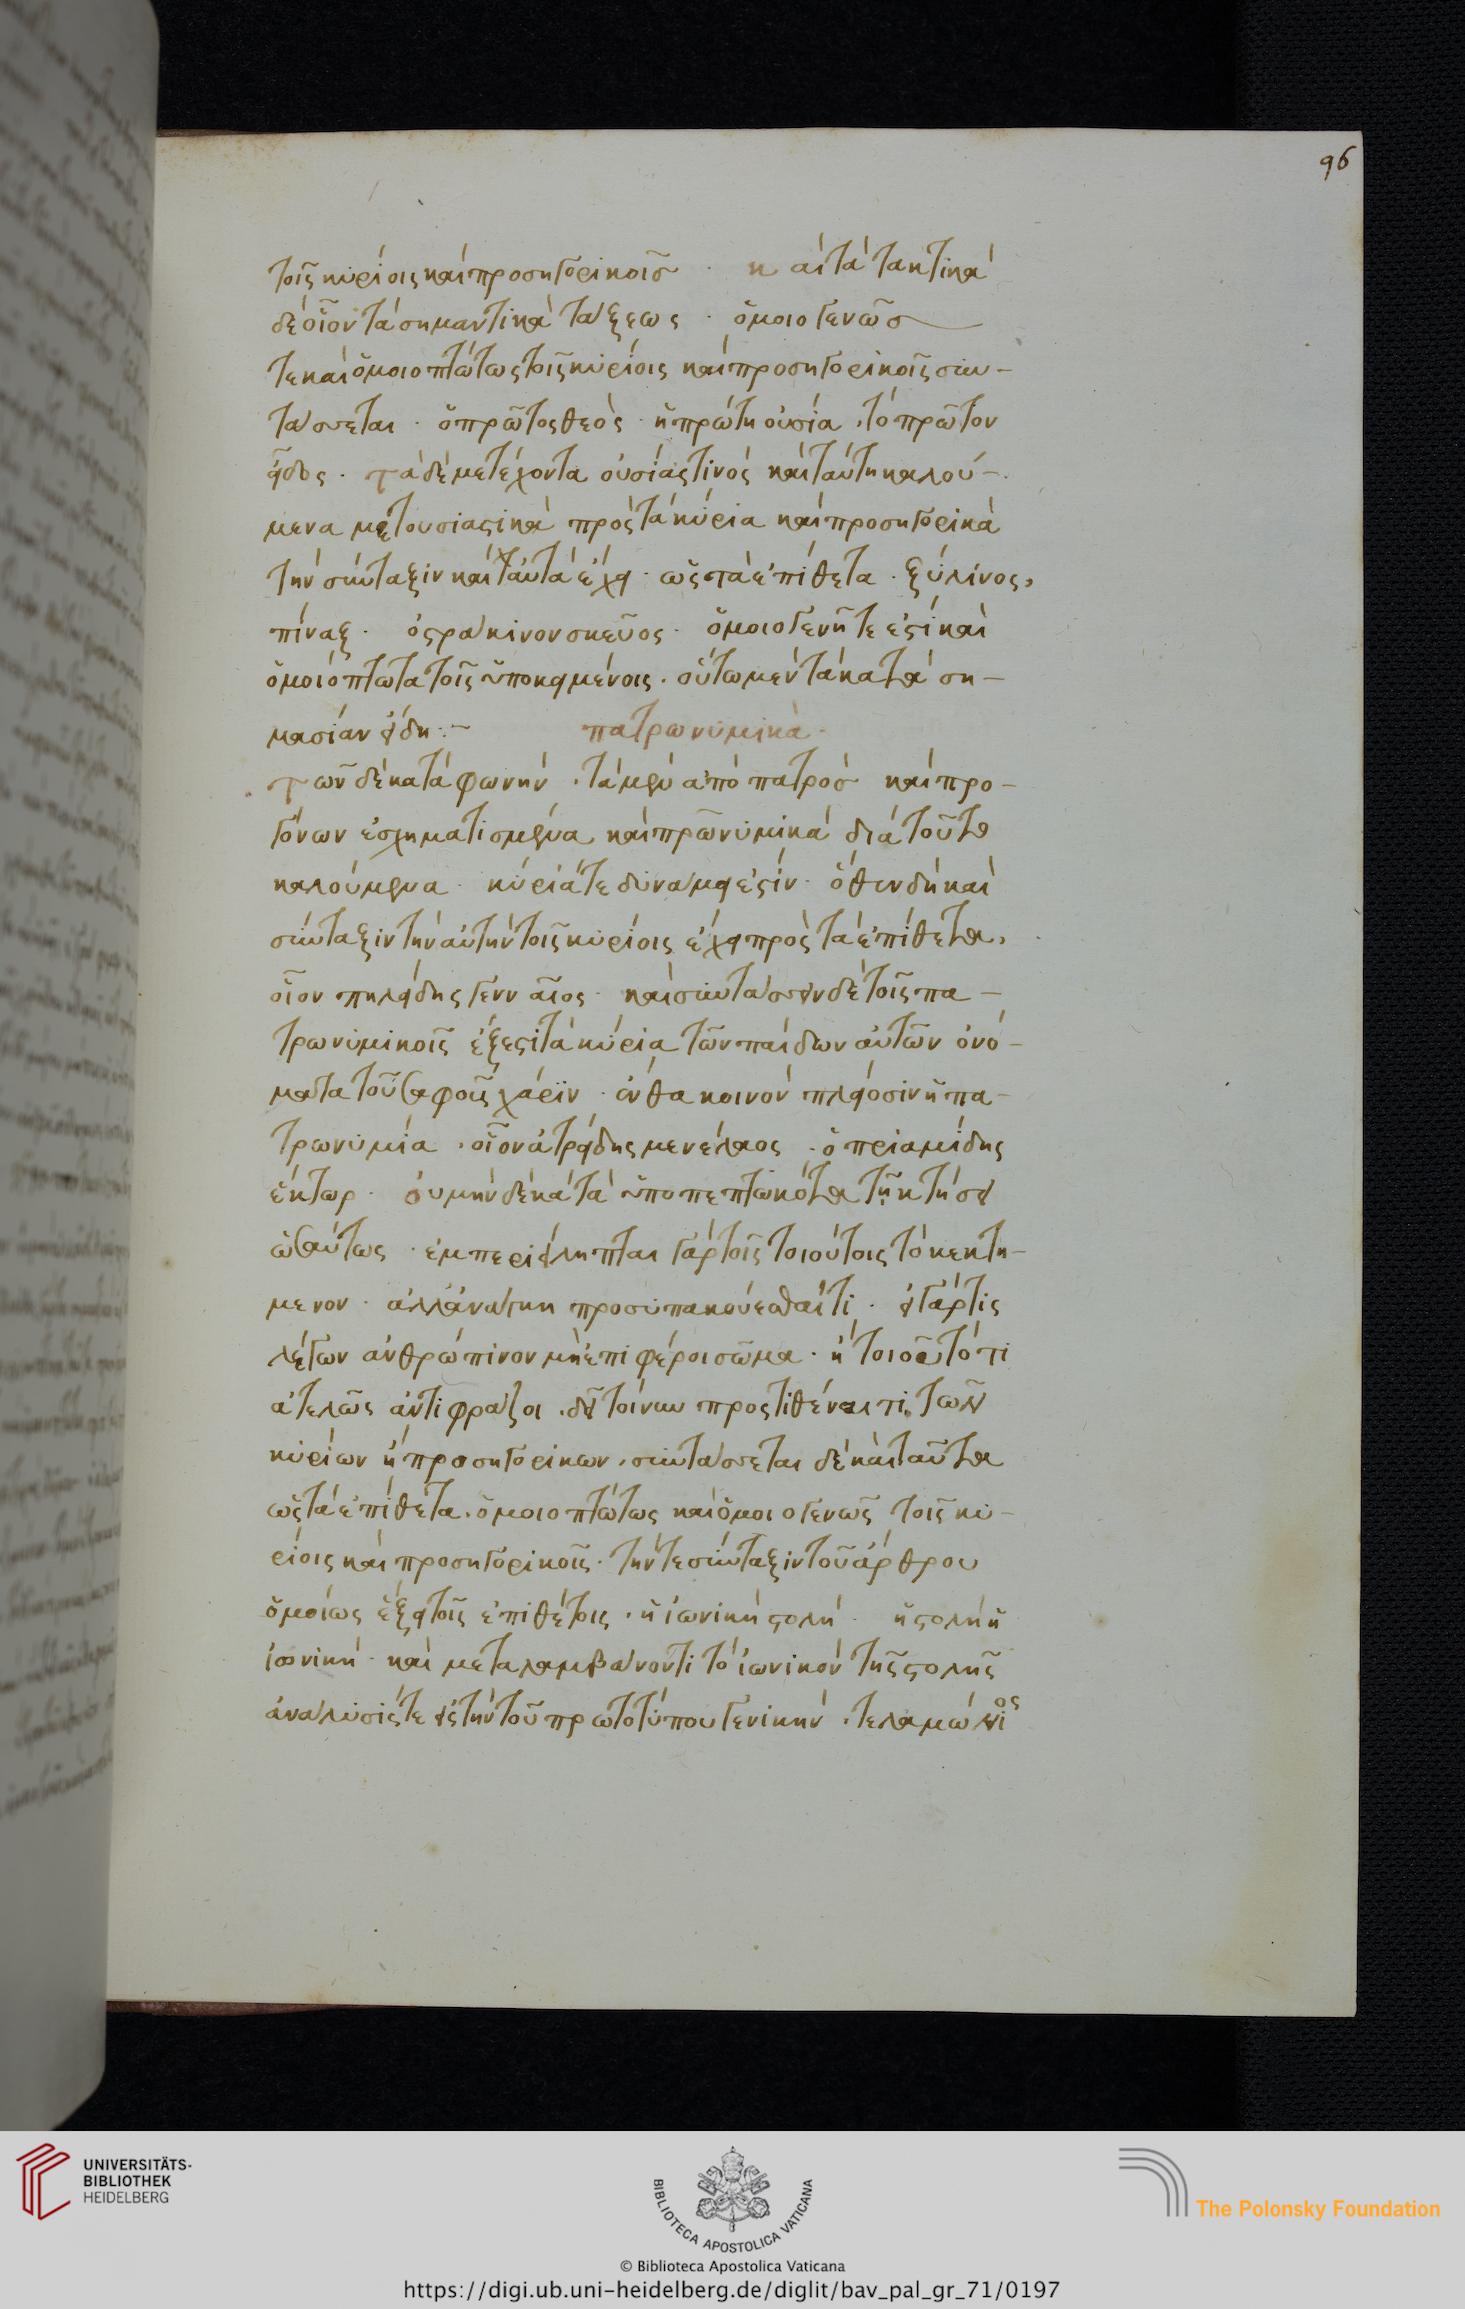 96
τοῖς κυρίοις καὶ προσηγορικοῖς · καὶ τὰ τακτικὰ
δὲ οἷον τὰ σημαντικὰ τάξεως · ὁμοιογενῶς
τε καὶ ὁμοιοπτώτως τοῖς κυρίοις καὶ προσηγορικοῖς συν-
τάσσεται · ὁ πρῶτος θεὸς · ἡ πρώτη οὐσία · τὸ πρῶτον
εἶδος · τὰ δὲ μετέχοντα οὐσίας τινὸς καὶ ταύτῃ καλού-
μενα μετουσιαστικὰ πρὸς τὰ κύρια καὶ προσηγορικὰ
τὴν σύνταξιν καὶ ταῦτὰ ἔχει · ὡς τὰ ἐπίθετα · ξύλινος,
πίναξ · ὀστράκινον σκεῦος · ὁμοιογενῆ τε ἐστὶ καὶ
ὁμοιόπτωτα τοῖς ὑποκειμένοις · οὕτω μὲν τὰ κατὰ ση-
μασίαν εἴδη :- πατρωνυμικὰ ·
τῶν δὲ κατὰ φωνὴν · τὰ μὲν ἀπὸ πατρὸς καὶ προ-
γόνων ἐσχηματισμένα καὶ πρωνυμικὰ διὰ τοῦτο
καλούμενα · κύριά τε δυνάμει ἐστίν · ὅθεν δὴ καὶ
σύνταξιν τὴν αὐτὴν τοῖς κυρίοις ἔχει πρὸς τὰ ἐπίθετα,
οἷον πηλείδης γενναῖος · καὶ συντάσσειν δὲ τοῖς πα-
τρωνυμικοῖς ἔξεστι τὰ κύρια τῶν παίδων αὐτῶν ὀνό-
ματα τοῦ σαφοῦς χάριν · ἔνθα κοινὸν πλείοσιν ἡ πα-
τρωνυμία · οἷον ἀτρείδης μενέλαος · ὁ πριαμίδης
ἕκτωρ · οὐ μὴν δὲ κα τὰ ὑποπεπτωκότα τῇ κτήσει
ὡσαύτως · ἐμπεριείληπται γὰρ τοῖς τοιούτοις τὸ κεκτη-
μενον · ἀλλ' ἀνάγκη προσυπακούεσθαί τι · εἰ γάρ τις
λέγων ἀνθρώπινον μὴ ἐπιφέροι σῶμα · ἢ τοιοῦτό τι
ἀτελῶς ἀντιφράζοι · δεῖ τοίνυν προστιθέναι τι τῶν
κυρίων ἢ προσηγορικων · συντάσσεται δὲ καὶ ταῦτα
ὡς τὰ ἐπίθετα · ὁμοιοπτώτως καὶ ὁμοιογενῶς τοῖς κυ-
ρίοις καὶ προσηγορικοῖς · τήν τε σύνταξιν τοῦ ἄρθρου
ὁμοίως ἕξει τοῖς ἐπιθέτοις · ἡ ἰωνικὴ στολὴ · ἡ στολὴ ἡ
ἰωνικὴ · καὶ μεταλαμβάνοντι τὸ ἰωνικὸν τῆς στολῆς
ἀνάλυσίς τε εἰς τὴν τοῦ πρωτοτύπου γενικὴν · τελαμώνιος
UNIVERSITÄTS-
BIBLIOTHEK
HEIDELBERG
BIBLIOTECA APOSTOLICA VATICANA
The Polonsky Foundation
© Biblioteca Apostolica Vaticana
https://digi.ub.uni-heidelberg.de/diglit/bav_pal_gr_71/0197